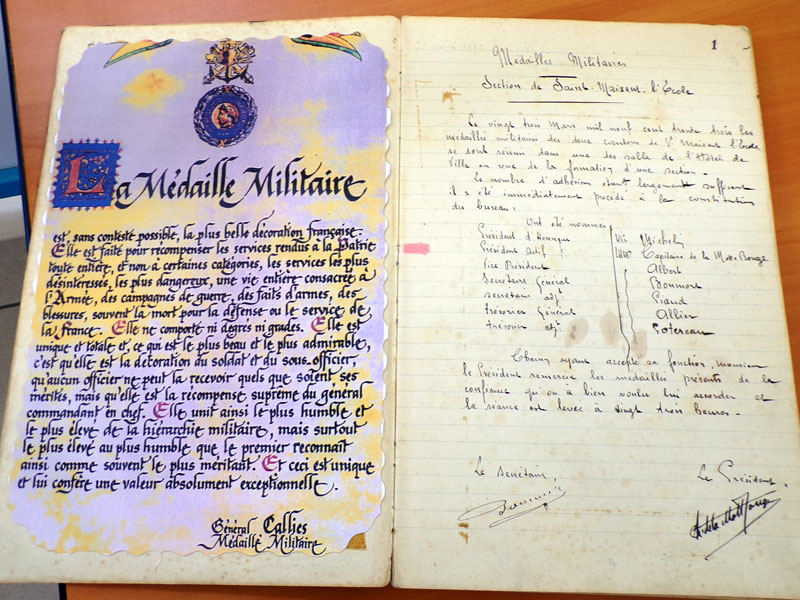 La Médaille Militaire
est, sans conteste possible, la plus belle décoration française.
Elle est faite pour récompenser les services rendus à la Patrie
toute entière, et non à certaines catégories, les services les plus
désintéressés, les plus dangereux, une vie entière consacrée à
l'Armée, des campagnes de guerre, des faits d'armes, des
blessures, souvent la mort pour la défense ou le service de
la France. Elle ne comporte ni degrés ni grades. Elle est
unique et totale et, ce qui est le plus beau et le plus admirable,
c'est qu'elle est la décoration du soldat et du sous-officier,
qu'aucun officier ne peut la recevoir quels que soient ses
mérites, mais qu'elle est la récompense suprême du général
commandant en chef. Elle unit ainsi le plus humble et
le plus élevé de la hiérarchie militaire, mais surtout
le plus élevé au plus humble que le premier reconnait
ainsi comme souvent le plus méritant. Et ceci est unique
et lui confère une valeur absolument exceptionnelle.
Général Callies
Médaille Militaire
1
Médaillés Militaires
Section de Saint-Maixent-l'Ecole
Le vingt trois Mars mil neuf cent trente trois les
médaillés militaires des deux cantons de St Maixent l'Ecole
se sont réunis dans une des salle de l'Hôtel de
Ville en vue de la formation d'une section.
Le nombre d'adhésion étant largement suffisant
il a été immédiatement procédé à la constitution
du bureau:
Ont été nommés
Président d'Honneur Michelin
Président actif Capitaine de la Motte Rouge
Vice Président Albert
Secrétaire Général Bonmort
Secrétaire adj. Giaud
Trésorier Général Allier
Trésorier adj. Potereau
Chacun ayant accepté sa fonction, monsieur
le Président remercie les médaillés présents de la
confiance qu'on a bien voulu lui accorder et
la séance est levée à vingt trois heures.
Le secrétaire,
Le Président.